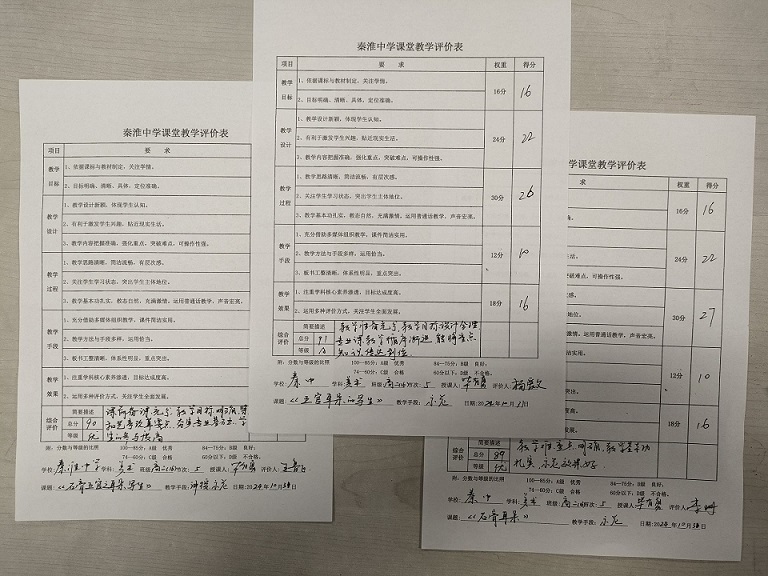 秦淮中学课堂教学评价表
项目 要 求
教学目标
1、依据课标与教材制定,关注学情。
2、目标明确、清晰、具体,定位准确。
教学设计
1、教学设计新颖,体现学生认知。
2、有利于激发学生兴趣,贴近现实生活。
3、教学内容把握准确,强化重点,突破难点,可操作性强。
教学过程
1、教学思路清晰,简洁流畅,有层次感。
2、关注学生学习状态,突出学生主体地位。
3、教学基本功扎实,教态自然,充满激情,运用普通话教学,声音宏亮。
教学手段
1、充分借助多媒体组织教学,课件简洁实用。
2、教学方法与手段多样,运用恰当。
3、板书工整清晰,体系性明显,重点突出。
教学效果
1、注重学科核心素养渗透,目标达成度高。
2、运用多种评价方式,关注学生全面发展。
综合评价
简要描述
总分 90
等级 优
附:分数与等级的比例 100—85分:A级 优秀 84—75分:B级 良好:
74—60分:C级 合格 60分以下:D级 不合格。
学校:秦淮中学 学科:美术 班级:高二(4) 节次:5 授课人: 评价人:
课题:《石膏五官之耳朵写生》 教学手段: 日期:2024年10月31日
秦淮中学课堂教学评价表
项目 要 求 权重 得分
教学目标 16分 16
1、依据课标与教材制定,关注学情。
2、目标明确、清晰、具体,定位准确。
教学设计 24分 22
1、教学设计新颖,体现学生认知。
2、有利于激发学生兴趣,贴近现实生活。
3、教学内容把握准确,强化重点,突破难点,可操作性强。
教学过程 30分 26
1、教学思路清晰,简洁流畅,有层次感。
2、关注学生学习状态,突出学生主体地位。
3、教学基本功扎实,教态自然,充满激情,运用普通话教学,声音宏亮。
教学手段 12分 10
1、充分借助多媒体组织教学,课件简洁实用。
2、教学方法与手段多样,运用恰当。
3、板书工整清晰,体系性明显,重点突出。
教学效果 18分 16
1、注重学科核心素养渗透,目标达成度高。
2、运用多种评价方式,关注学生全面发展。
综合评价
简要描述 教学准备充分,教学目标设计合理
总分 专业课教学循序渐进
等级
附:分数与等级的比例 100—85分:A级 优秀 84—75分:B级 良好:
74—60分:C级 合格 60分以下:D级 不合格。
学校:秦中 学科:美术 班级:高二(4) 节次:5 授课人: 评价人:
课题:《五官耳朵的写生》 教学手段:示范 日期:2024年10月31日
学课堂教学评价表
求 权重 得分
16分 16
24分 22
可操作性强。
30分 27
激情,运用普通话教学,声音宏亮。
12分 10
突出。
18分 16
发展。
综合评价
简要描述 教学重点明确
总分 89
等级 优
附:分数与等级的比例 100—85分:A级 优秀 84—75分:B级 良好:
74—60分:C级 合格 60分以下:D级 不合格。
学校:秦中 学科:美术 班级:高二(4) 节次:5 授课人: 评价人:
课题:《石膏耳朵》 教学手段:示范 日期:2024年10月31日